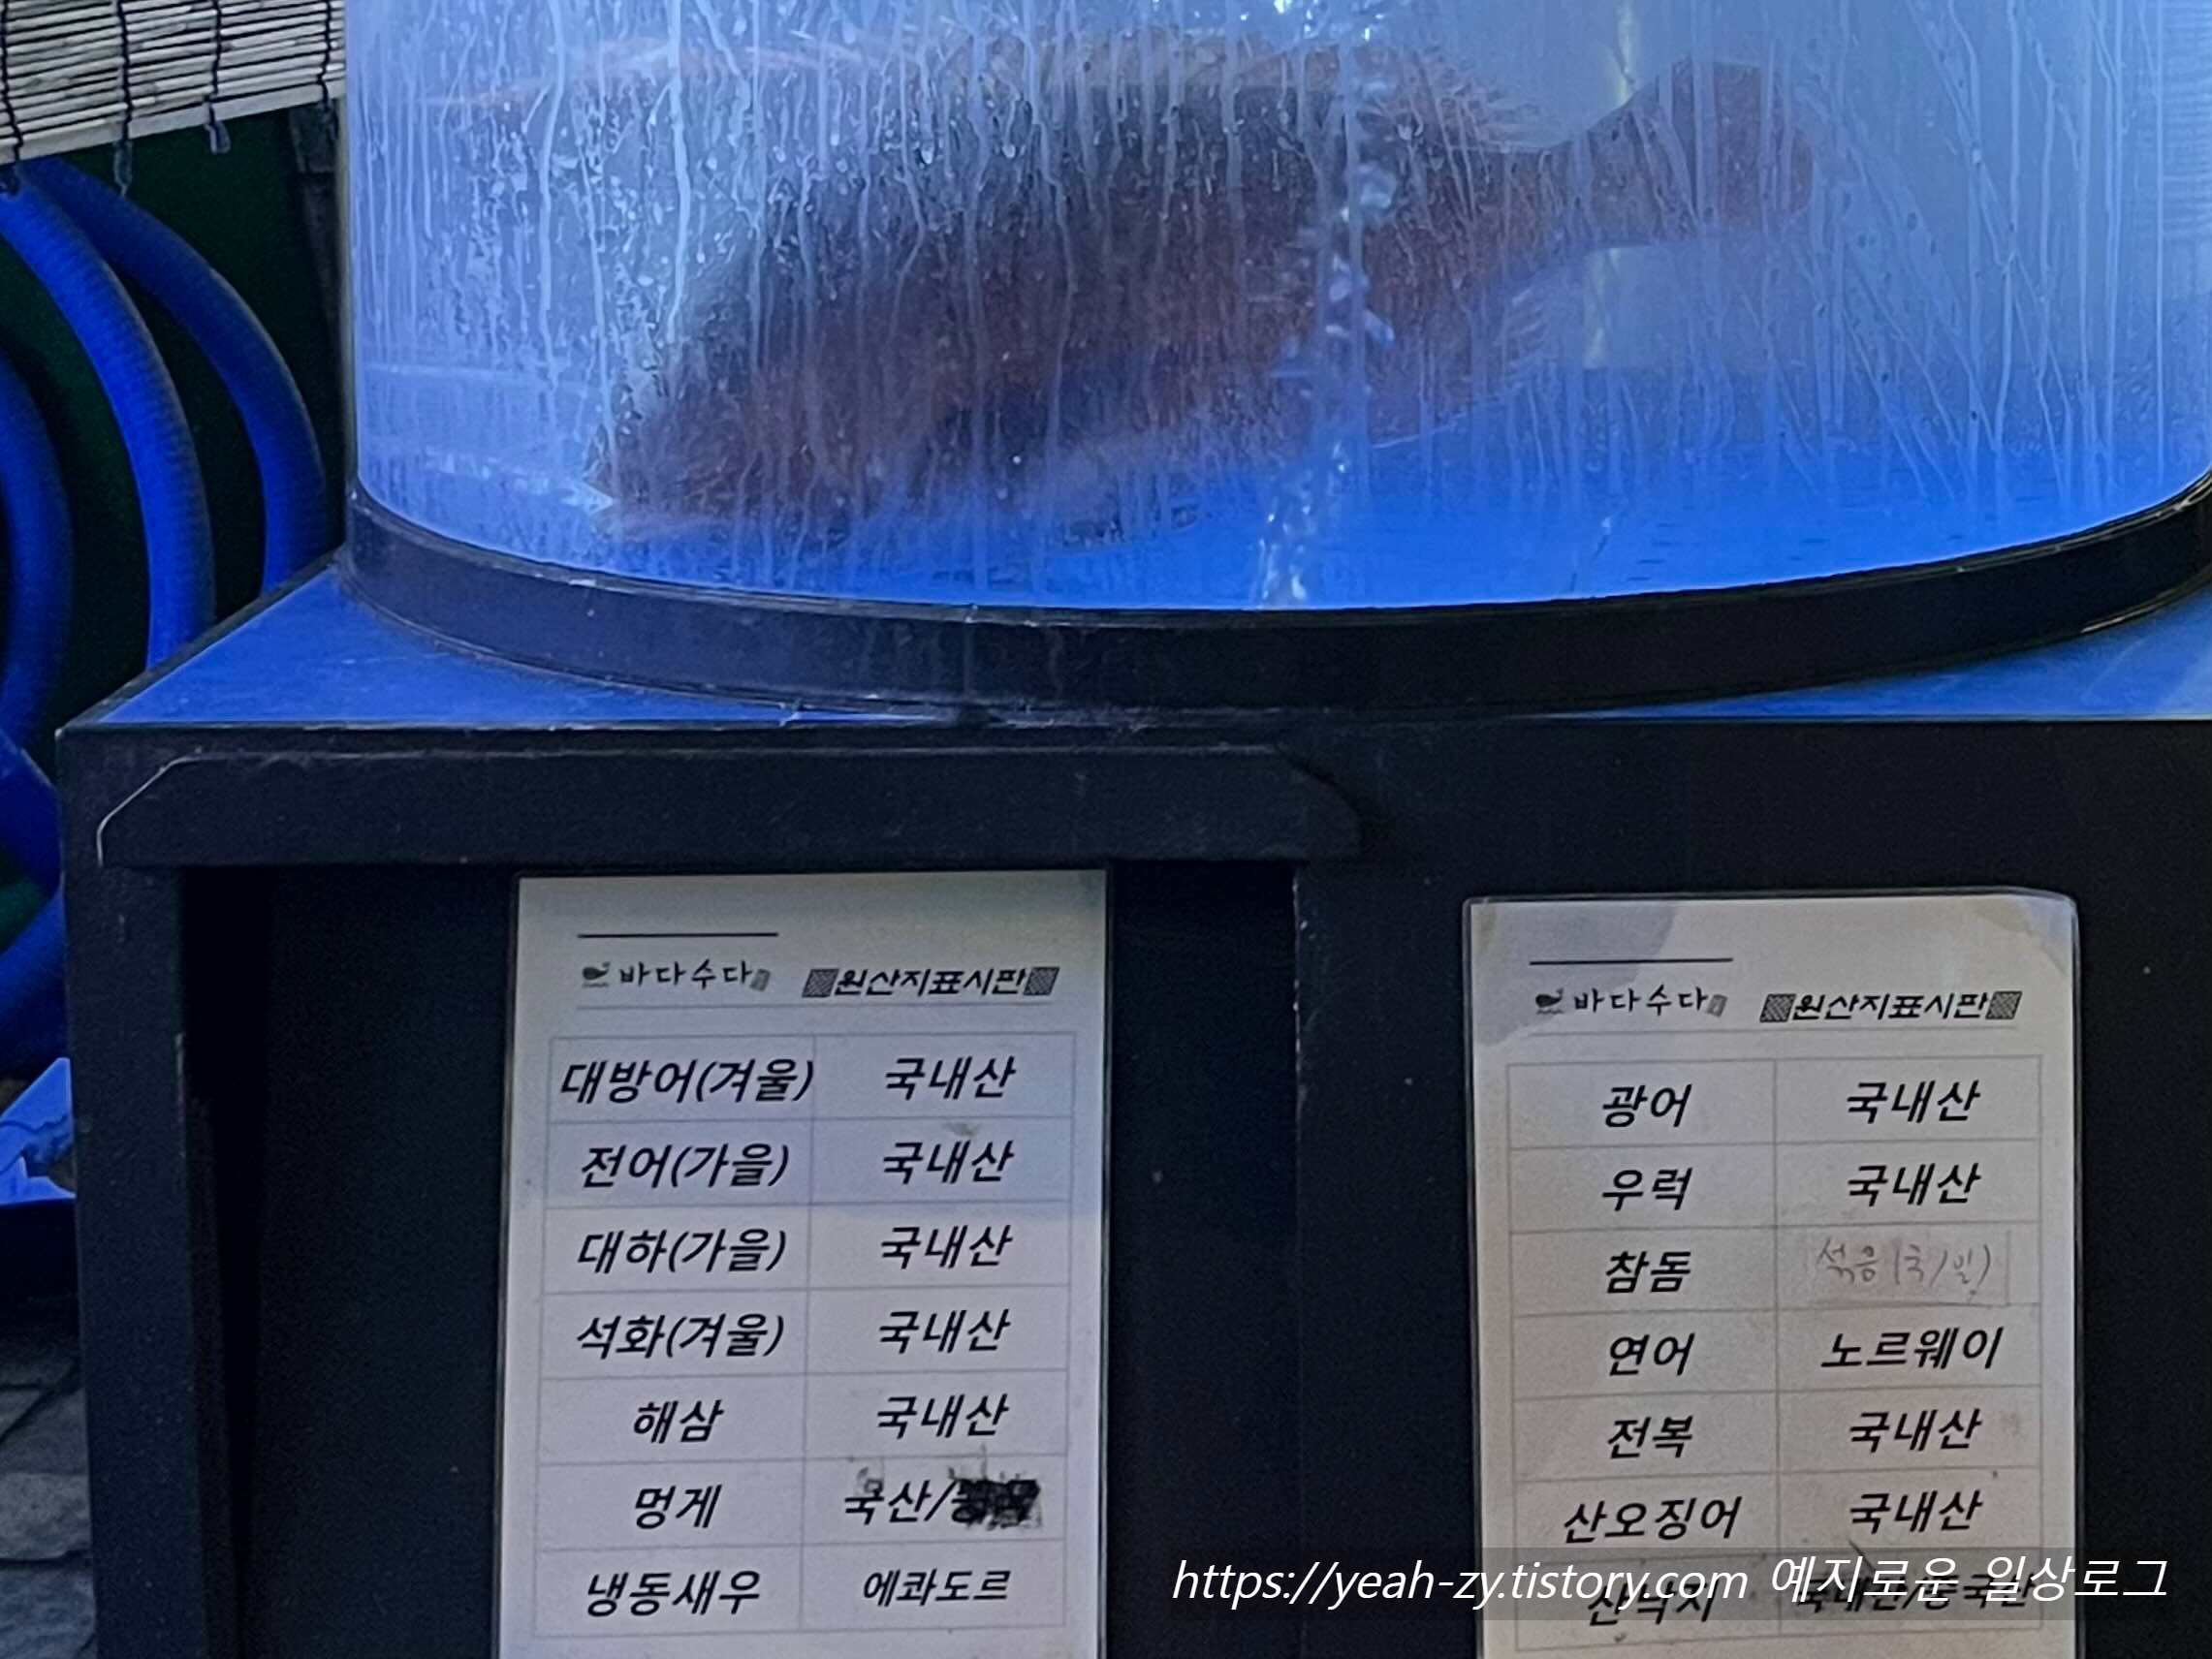 바다수다 원산지표시판
대방어(겨울) 국내산
전어(가을) 국내산
대하(가을) 국내산
석화(겨울) 국내산
해삼 국내산
멍게 국산/
냉동새우 에콰도르
바다수다 원산지표시판
광어 국내산
우럭 국내산
참돔 섞음(국/일)
연어 노르웨이
전복 국내산
산오징어 국내산
산낙지 국내산/중국산
https://yeah-zy.tistory.com 예지로운 일상로그